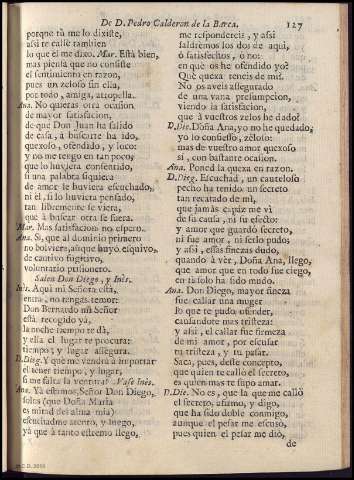 De D. Pedro Calderon de la Barca. 127
porque tù me lo dixiste,
assi te calle tambien
lo que él me dixo. Mar. Està bien,
mas piensa que no consiste
el sentimiento en razon,
pues un zeloso sin ella,
por todo, amiga, atropella.
Ana. No quieras otra ocasion
de mayor satisfacion,
de que Don Juan ha salido
de casa, à buscarte ha ido,
quexoso, ofendido, y loco:
y no me tengo en tan poco,
que lo huviera consentido,
si una palabra siquiera
de amor le huviera escuchado,
ni él, si lo huviera pensado,
tan libremente se viera,
que à buscar otra se fuera.
Mar. Mas satisfacion no espero.
Ana. Si, que al dominio primero
no bolviera, aunque huyó esquivo,
de cautivo fugitivo,
voluntario prisionero.
Salen Don Diego, y Inès.
Inès. Aqui mi Señora està,
entra, no tengas temor:
Don Bernardo mi Señor
està recogido yà,
la noche tiempo te dà,
y ella el lugar te procura:
tiempo, y lugar assegura.
D. Dieg. Y què me vendrà à importar
el tener tiempo, y lugar,
si me falta la ventura? Vase Inès.
Ana. Yà estamos, Señor Don Diego,
solos (que Doña Maria
es mitad del alma mia)
escuchadme atento, y luego,
yà que à tanto estremo llego,
me responderèis, y assi
saldrèmos los dos de aqui,
ò satisfechos, ò no:
en què os he ofendido yo?
Què quexa tenèis de mi?
No os aveis assegurado
de una vana presumpcion,
viendo la satisfacion,
que à vuestros zelos he dado?
D. Die. Doña Ana, yo no he quedado,
yo lo confiesso, zeloso:
mas de vuestro amor quexoso
si, con bastante ocasion.
Ana. Poned la quexa en razon.
D. Dieg. Escuchad, un cauteloso
pecho ha tenido un secreto
tan recatado de mi,
que jamàs capàz me vi
de su causa, ni su efecto:
y amor que guardò secreto,
ni fue amor, ni serlo pudo;
y assi, essas finezas dudo,
quando à vèr, Doña Ana, llego,
que amor que en todo fue ciego,
en ti solo ha sido mudo.
Ana. Don Diego, mayor fineza
fue callar una muger
lo que te pudo ofender,
causandote mas tristeza:
y assi, el callar fue firmeza
de mi amor, por escusar
tu tristeza, y tu pesar.
Saca, pues, deste concepto,
que quien te callò el secreto,
es quien mas te supo amar.
D. Die. No es, que la que me callò
el secreto, afirmo, y digo,
que ha sido doble conmigo,
aunque el pesar me escusò,
pues quien el pesar me diò,
de